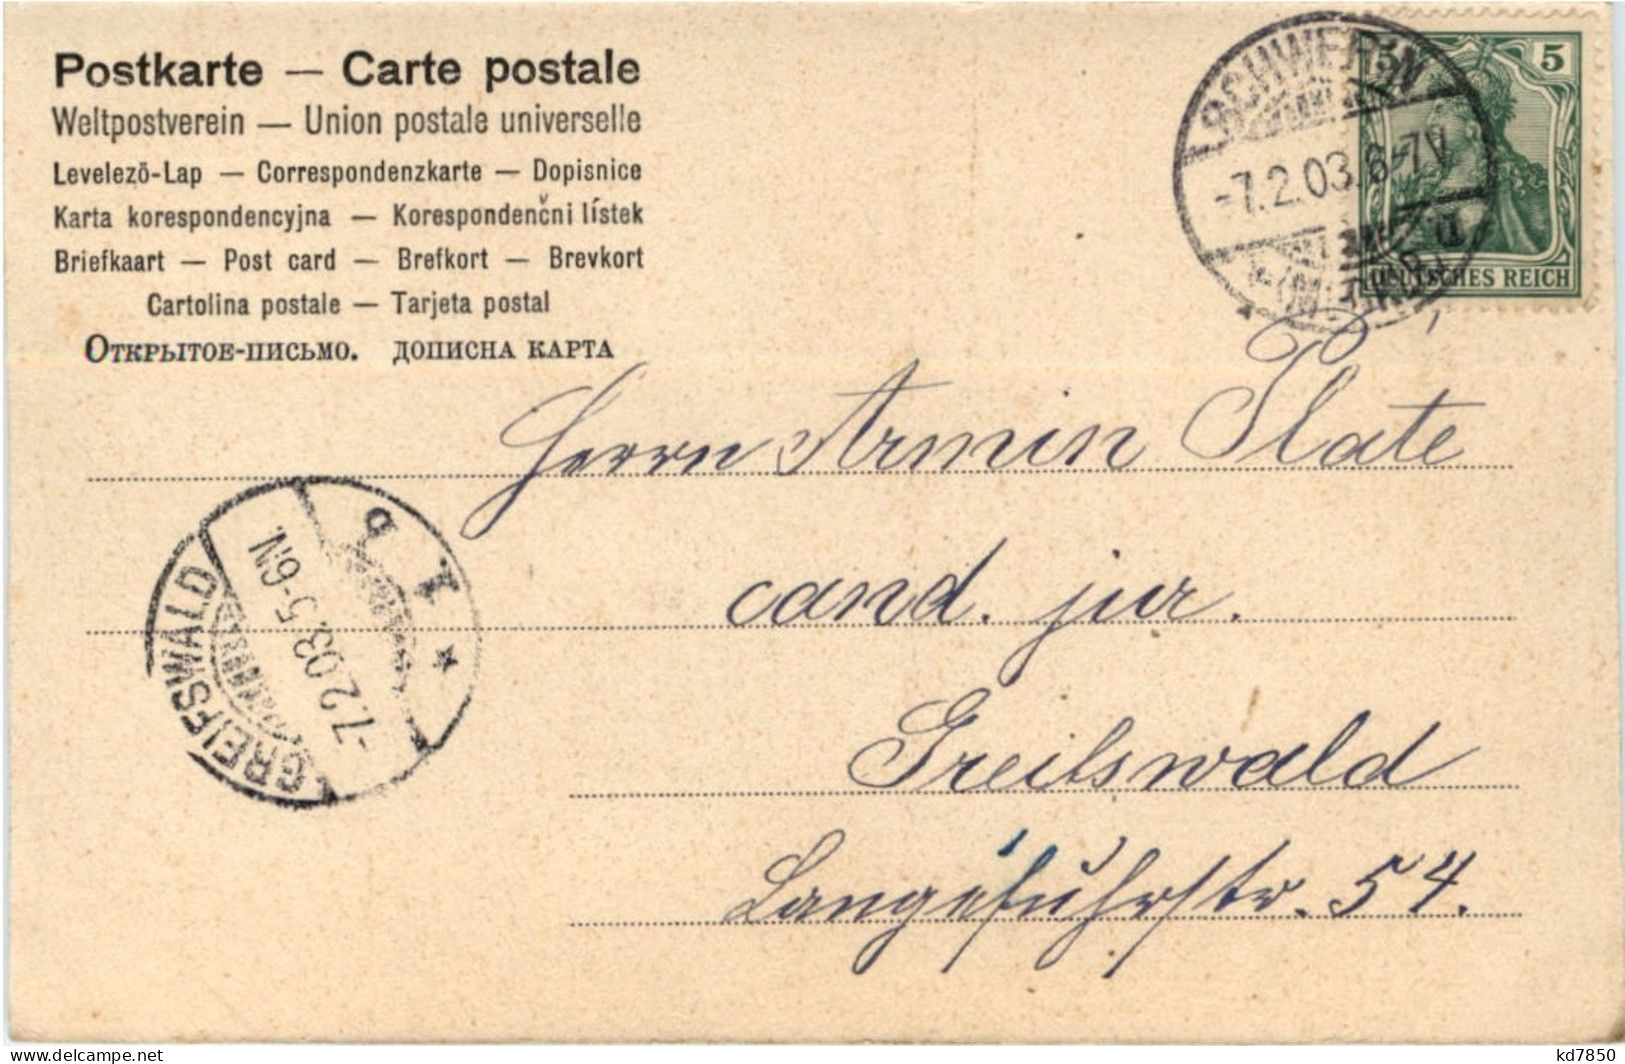 Postkarte — Carte postale
Weltpostverein — Union postale universelle
Levelezö-Lap — Correspondenzkarte — Dopisnice
Karta korespondencyjna — Korespondenčni lístek
Briefkaart — Post card — Brefkort — Brevkort
Cartolina postale — Tarjeta postal
Открытое-письмо. дописна карта
SCHWERIN
-7.2.03.6-7V
5 5
DEUTSCHES REICH
Herrn Armin Plate
cand. jur.
Greifswald
Langefuhrstr. 54.
GREIFSWALD
-7.2.03.5-6N.
delcampe.net
kd7850